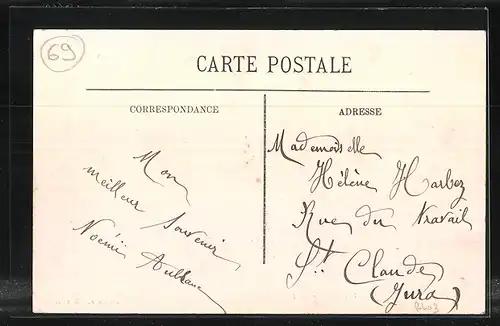 69
CARTE POSTALE
CORRESPONDANCE
Mon
meilleur souvenir
Noémi
ADRESSE
Mademoiselle
Hélène Harbez
Rue du Travail
St. Claude
(Jura)